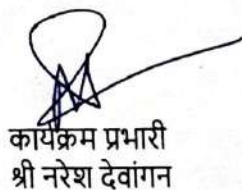 कार्यक्रम प्रभारी
श्री नरेश देवांगन